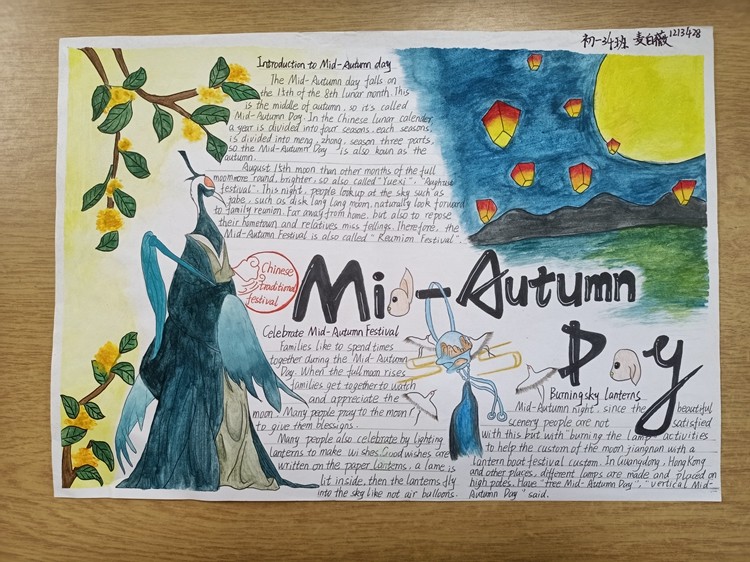 初一34班 麦白薇 1213428
Introduction to Mid-Autumn day
The Mid-Autumn day falls on
the 15th of the 8th lunar month. This
is the middle of autumn, so it's called
Mid-Autumn Day. In the Chinese lunar calender
a year is divided into four seasons, each seasons,
is divided into meng, zhong, season three parts,
so the Mid-Autumn Day is also koun as the
autumn.
August 15th moon than other months of the full
moon more round, brighter, so also called "Yuexi",
festival". This night, people look up at the sky such as
jabe, such as disk lang lang moon, naturally look forward
to family reunion. Far away from home, but also to repose
their hometown and relatives miss fellings. Therefore, the
Mid-Autumn Festival is also called "Reunion Festival".
Chinese
traditional
festival
Mid-Autumn
Day
Celebrate Mid-Autumn Festival
Families like to spend times
together during the Mid-Autumn
Day. When the full moon rises
families get together to watch
and appreciate the
moon. Many people pray to the moon
to give them blessigns.
Many people also celebrate by lighting
lanterns to make wishes. Good wishes are
written on the paper lanterns, a lame is
lit inside, then the lanterns fly
into the sky like not air balloons.
Burning sky Lanterns
Mid-Autumn night, since the beautiful
scenery people are not satisfied
with this but with "burning the lamp" activities
to help the custom of the moon jiangnan with a
lantern boat festival custom. In Guangdong, HongKong
and other places, different lamps are made and placed on
high poles. Have "tree Mid-Autumn Day", "vertical Mid-
Autumn Day" said.